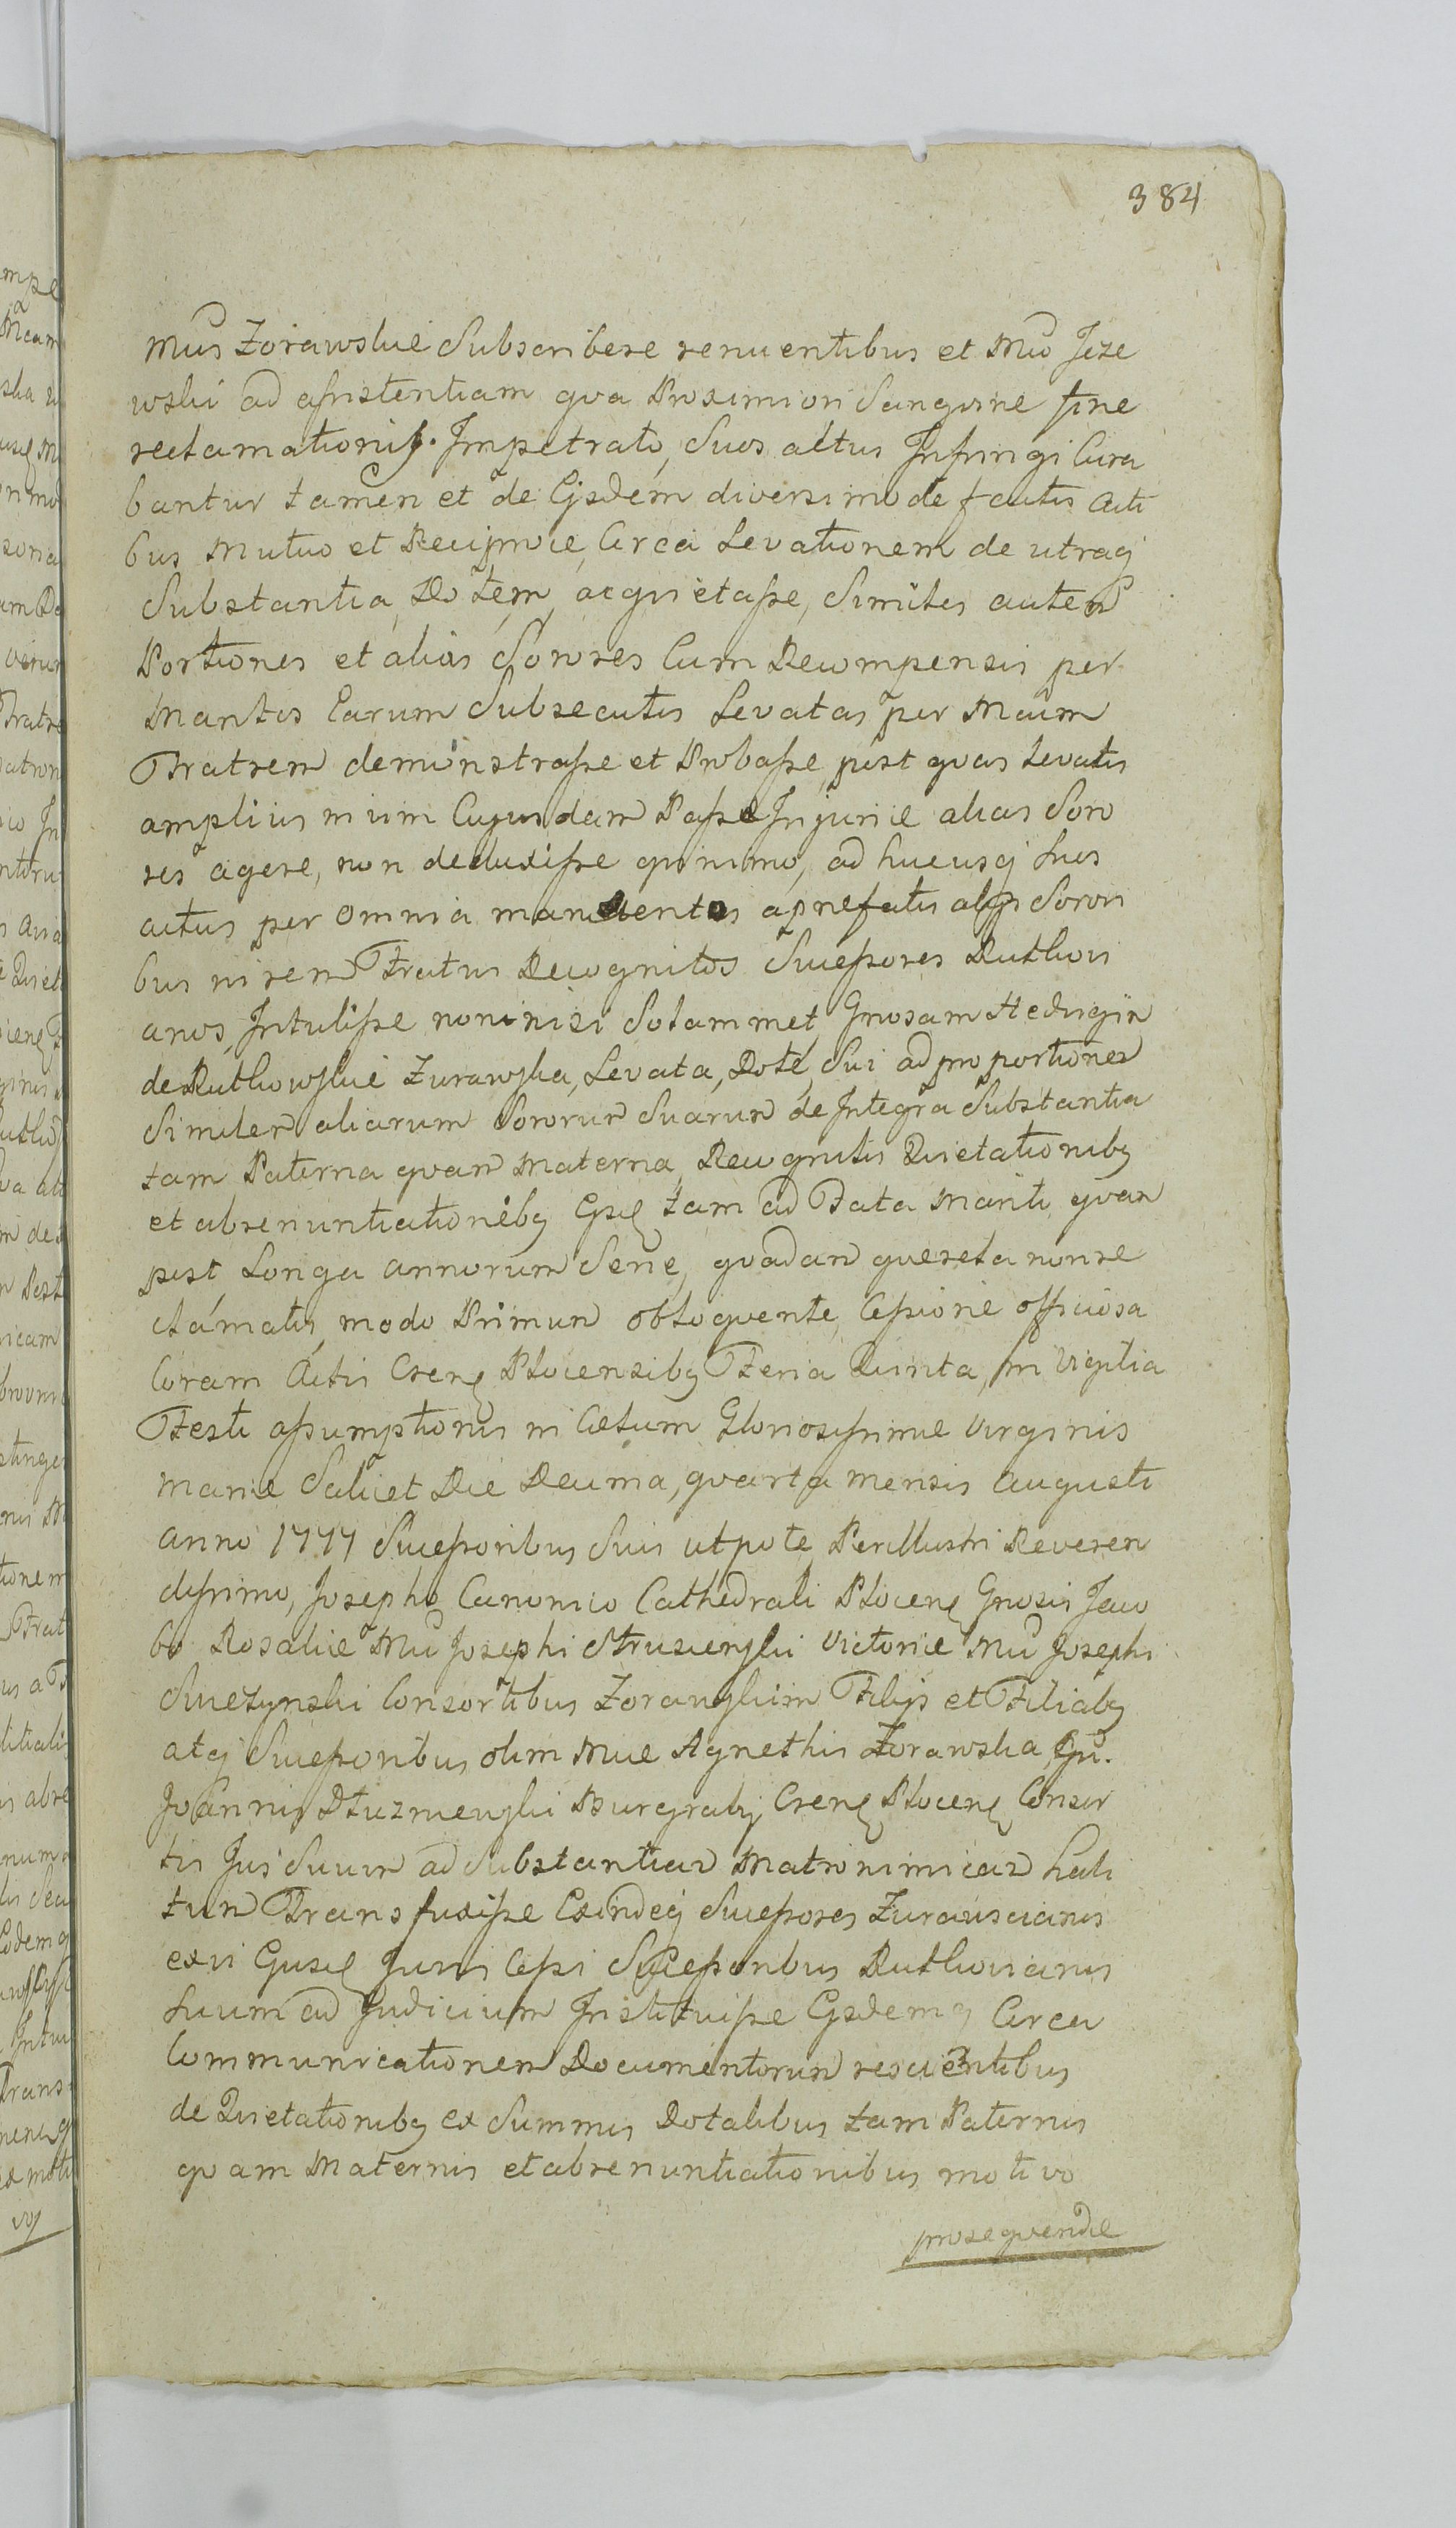 384
Mus Zorawskie Subscribere renuentibus et Mco Jeze
wski ad assistentiam qva Proximiori Sangvine sine
reclamationis. Impetrato, Suos actus Infringi Cura
bantur tamen et de Ejsdem diversimode factis acti
bus Mutuo et Reciproce, Circa Levationem de utraq
Substantia, Dotem, acqvietasse, Similes autem
Portiones et alias Sorores Cum Recompensis per
Maritos Earum Subsecutis Levatas per Mcum
Fratrem demonstrasse et Probasse, post qvas Levatis
amplius in vim Cujusdam Passe Injurie alias Soro
res agere, non deduxisse qvinimo, ad hucusq hos
actus per omnia manentes a prefatis alys Sorori
bus in rem Fratris Recognitos Successores Rutkovi
anos, Intulisse non nisi Solammet Gnosam Hedvigin
de Rutkowskie Zurawska, Levata, Dote, Sui ad proportionem
Similem aliarum Sororum Suarum de Integra Substantia
tam Paterna qvam Materna, Recognitis Qvietationibq
et abrenuntiationibq Ejsq tam ad Fata Mariti qvam
post Longa annorum Serie, qvadam qverela non re
clamatis, modo Primum obloqvente, Cessione officiosa
Coram Actis Crenq Plocensibq Feria Qvinta, in Vigilia
Festi assumptionis in Cælum Gloriosissimæ Virginis
Mariæ Salicet Die Decima, qvarta mensis Augusti
anno 1777 Successoribus Suis utpote Perillustri Reveren
dissimo, Josepho Canonico Cathedrali Plocenq Gnosis Jaco
bo Rosalie Mci Josephi Strusienski Victorie Mci Josephi
Smezynski Consortibus Zorawskim Filijs et Filiabq
atq Successoribus olim Mce Agnethis Zorawska, Gsi.
Joannis Dluzniewski Burgraby Crenq Plocenq Consor
tis Jus Suum ad Substantiam Matronimicam habi
tum Transfusisse Exindeq Successores Zurawscianos
ex vi Ejusq Juris Cessi Successoribus Rutkovianis
Suum ad Judicium Instituisse Ejsdemq Circa
Communicationem Documentorum rescientibus
de Qvietationibq ex Summis Dotalibus tam Paternis
qvam Maternis et abrenuntiationibus motivo
proseqvende